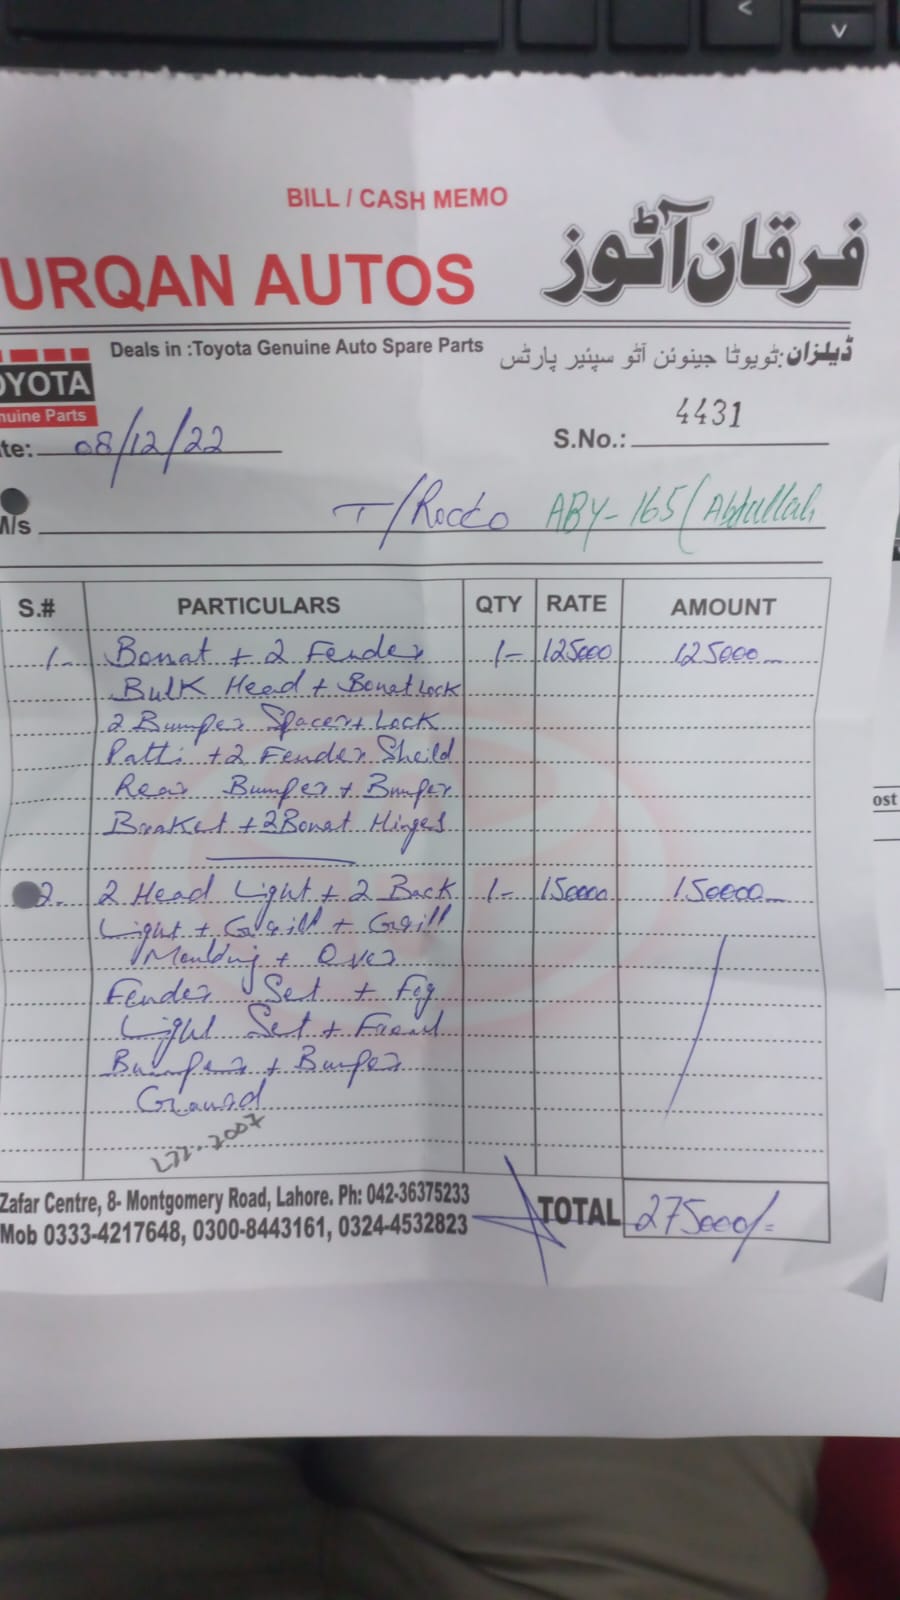 BILL / CASH MEMO
URQAN AUTOS فرقان آٹوز
Deals in :Toyota Genuine Auto Spare Parts ڈیلزان: ٹویوٹا جینوئن آٹو سپئیر پارٹس
OYOTA
nuine Parts
te: 08/12/22 S.No.: 4431
M/s T/Rocco ABY-165/Abdullah
S.# PARTICULARS QTY RATE AMOUNT
1- Bonat + 2 Fender 1- 125000 125000
Bulk Head + Bonat Lock
2 Bumper Spacer + Lock
Patti + 2 Fender Sheild
Rear Bumper + Bumper
Braket + 2 Bonat Hinges
2. 2 Head Light + 2 Back 1- 150000 150000
Light + Grill + Grill
Moulding + Over
Fender Set + Fog
Light Set + Front
Bumper + Bumper
Ground
Zafar Centre, 8- Montgomery Road, Lahore. Ph: 042-36375233
Mob 0333-4217648, 0300-8443161, 0324-4532823
TOTAL 275000/-
ost